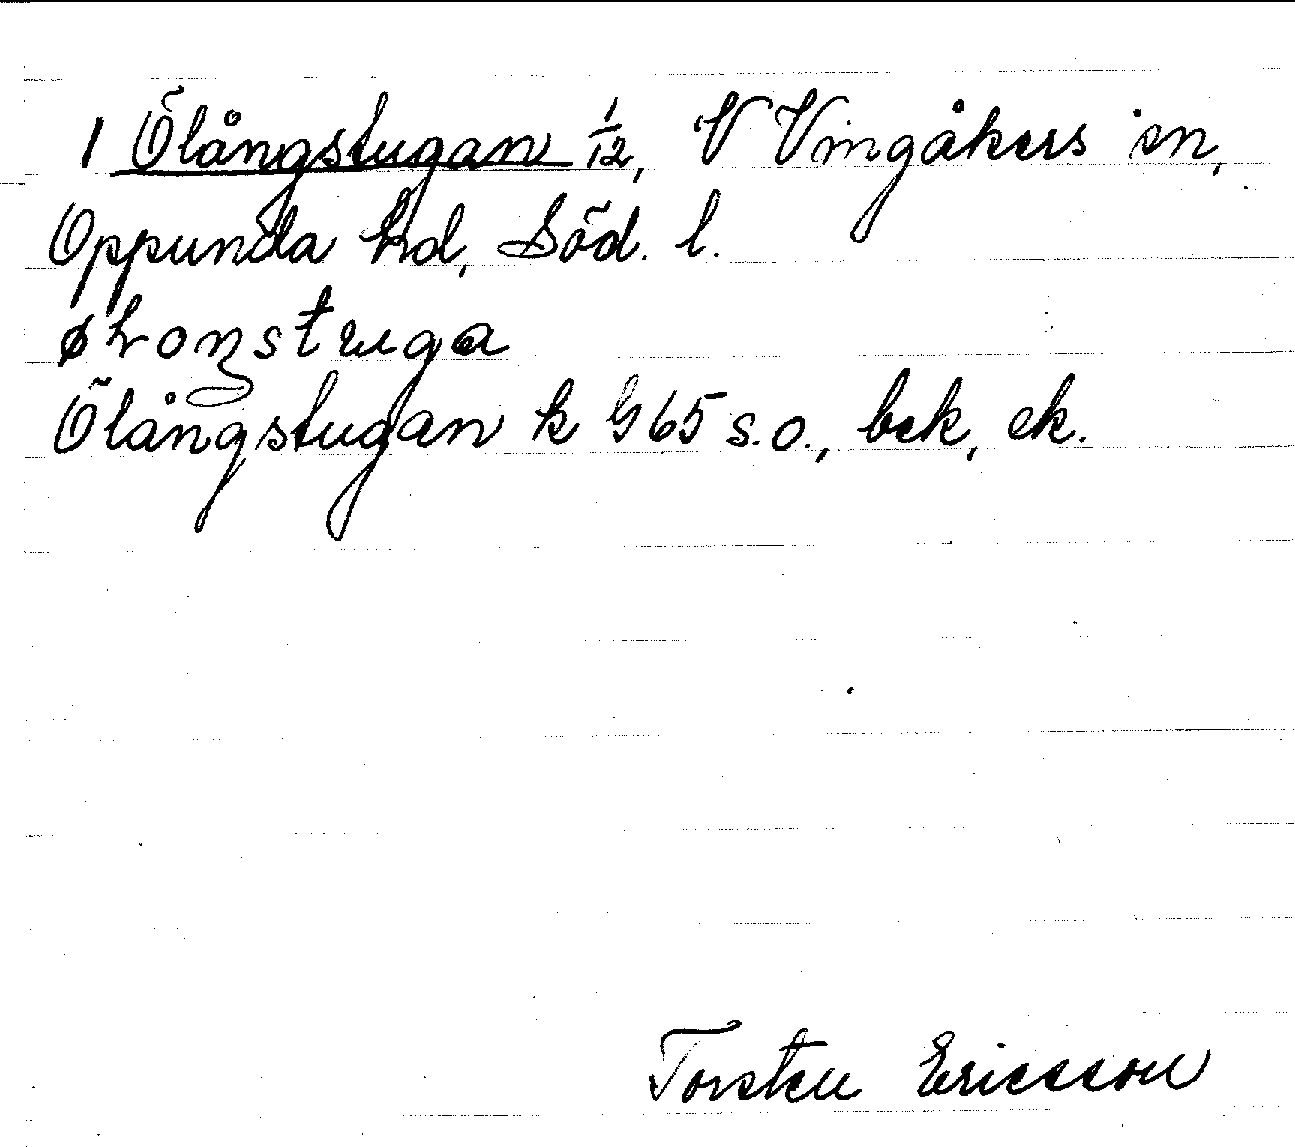 1 Ölångstugan 1/12, V Vingåkers sn,
Oppunda hd, Söd. l.
Ölångstugan k G 65 s.o., bek, ek.
Torsten Ericsson